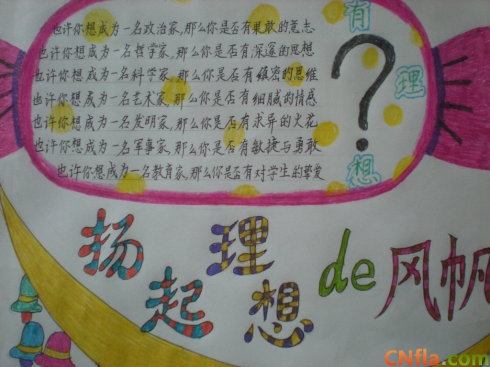 也许你想成为一名政治家,那么你是否有果敢的意志
也许你想成为一名哲学家,那么你是否有深邃的思想
也许你想成为一名科学家,那么你是否有缜密的思维
也许你想成为一名艺术家,那么你是否有细腻的情感
也许你想成为一名发明家,那么你是否有求异的火花
也许你想成为一名军事家,那么你是否有敏捷与勇敢
也许你想成为一名教育家,那么你是否有对学生的挚爱
有理想?
扬起理想de风帆
CNfla.com